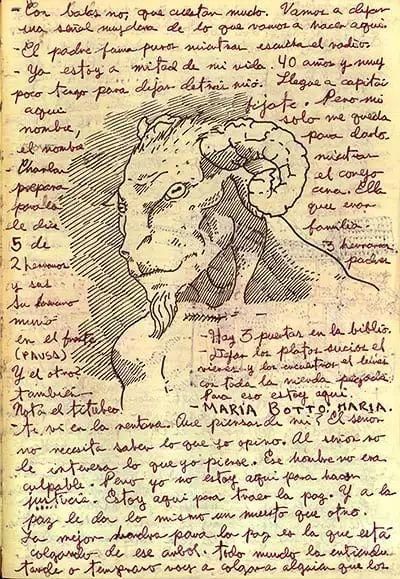 - Con balas no, que cuestan mucho. Vamos a dejar
una señal muy clara de lo que vamos a hacer aquí.
- El padre fuma puros mientras escucha el radio.
- Ya estoy a mitad de mi vida 40 años y muy
poco tengo para dejar detrás mío. Llegué a capitán
fijate. Pero mi
aquí
nombre,
solo me queda
el nombre
para darlo.
- Charlan
mientras
prepara
el conejo
para la
cena. Ella
le dice
que eran
5 de
familia
2 hermanos
3 hermanas
y sus
padres
Su hermano
murió
en el frente
(PAUSA)
Y el otro?
también
Nota el titubeo
- Hay 3 puertas en la biblio.
- Dejar los platos sucios el
viernes y los encuentras el lunes
con toda la mierda pegada.
Para eso estoy aquí.
- MARÍA BOTTO: MARIA.
- te vi en la ventana. Que piensas de mi? El señor
no necesita saber lo que yo opino. Al señor no
le interesa lo que yo piense. Ese hombre no era
culpable. Pero yo no estoy aquí para hacer
justicia. Estoy aquí para traer la paz. Y a la
paz le da lo mismo un muerto que otro.
La mejor para la paz es la que está
colgando de ese arbol. todo mundo la entiende
tarde o temprano voy a colgar a alguien que los